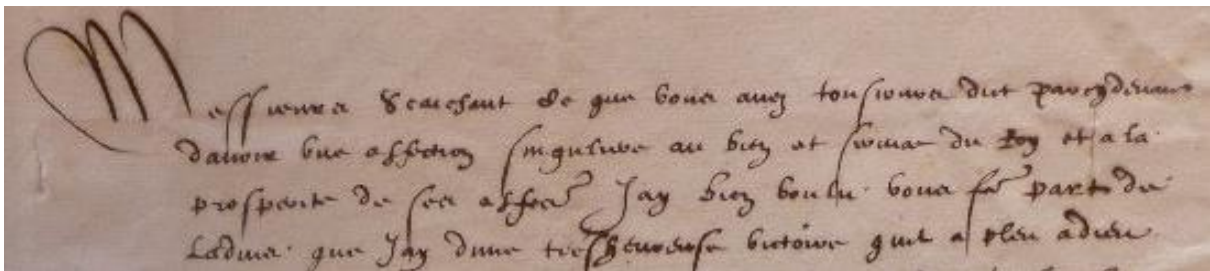 Messieurs Scaichant ce que vous avez tousiours dict parcydevant
davoir vne affection singuliere au bien et service du Roy et a la
prosperite de ses affes Jay bien voulu vous fe part de
Ladvis que Jay dune tresheureuse victoire quil a pleu a dieu